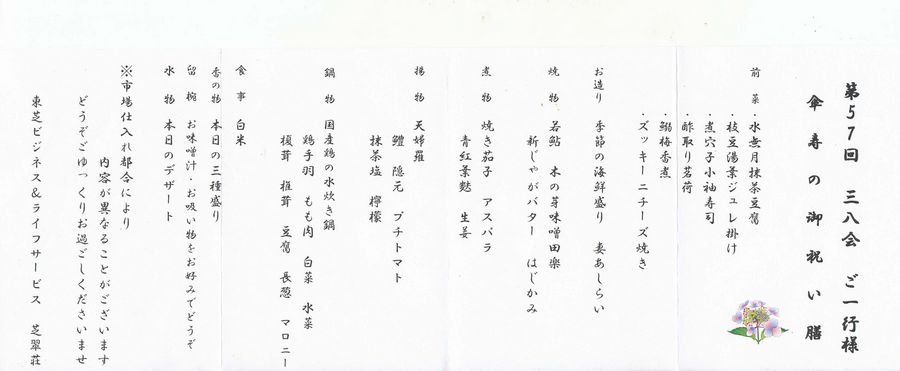 第57回　三八会　ご一行様
傘寿の御祝い膳
前菜・水無月抹茶豆腐
・枝豆湯葉ジュレ掛け
・煮穴子小袖寿司
・酢取り茗荷
・鰯梅香煮
・ズッキーニチーズ焼き
お造り　季節の海鮮盛り　妻あしらい
焼物　若鮎　木の芽味噌田楽
新じゃがバター　はじかみ
煮物　焼き茄子　アスパラ
青紅葉麩　生姜
揚物　天婦羅
鱧　隠元　プチトマト
抹茶塩　檸檬
鍋物　国産鶏の水炊き鍋
鶏手羽　もも肉　白菜　水菜
榎茸　椎茸　豆腐　長葱　マロニー
食事　白米
香の物　本日の三種盛り
留椀　お味噌汁・お吸い物をお好みでどうぞ
水物　本日のデザート
※市場仕入れ都合により
内容が異なることがございます
どうぞごゆっくりお過ごしくださいませ
東芝ビジネス&ライフサービス　芝翠荘